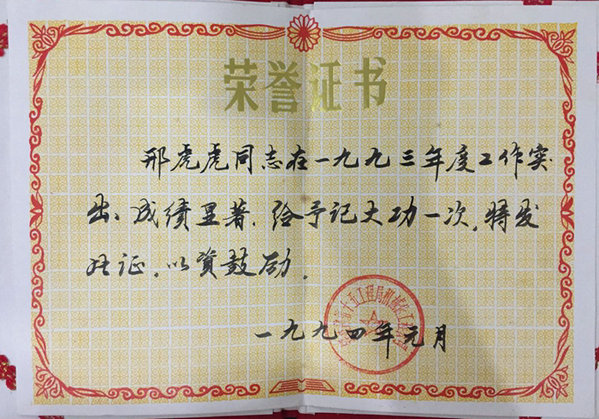 荣誉证书
邢虎虎同志在一九九三年度工作突
出、成绩显著、给予记大功一次,特发
此证。以资鼓励。
一九九四年元月